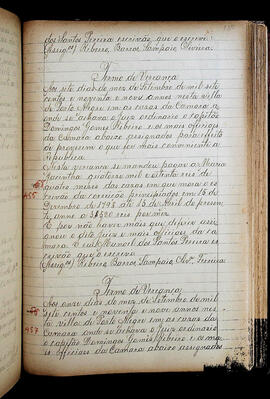 dos Santos Pereira escrivão que o escrevi.
(Assig.os) Ribeiro, Barros, Sampaio, Oliveira.
Termo de Vereança
Aos sete dias do mez de Setembro de mil sete
centos e noventa e nove annos nesta villa
de Porto Alegre em as casas da Camara a-
onde se achava o Juiz ordinario o capitão
Domingos Gomes Ribeiro e os mais officiaes
da Camara abaixo assignados para effeito
de proverem o que for mais conveniente a
republica.
Nesta vereança se mandou pagar a Maria
Jacintha quatorze mil e oitenta reis de
quatro mezes das cazas em que mora o es-
crivão da correição principiados em 15 de
Dezembro de 1798 até 15 de Abril do presen-
te anno a 3$520 reis por mez.
E por não haver mais que deferir assi-
nou o dito Juiz e mais officiaes da ca-
mara. E eu Manoel dos Santos Pereira es-
crivão que o escrevi.
(Assig.os) Ribeiro, Barros, Sampaio, Olv.a, Ferreira.
Termo de Vereança
Aos onze dias do mez de Setembro de mil
sete centos e noventa e nove annos nes-
ta villa de Porto Alegre em as cazas da
Camara onde se achava o Juiz ordinario
o capitão Domingos Gomes Ribeiro e os ma-
is officiaes da Camara abaixo assignados
455
457